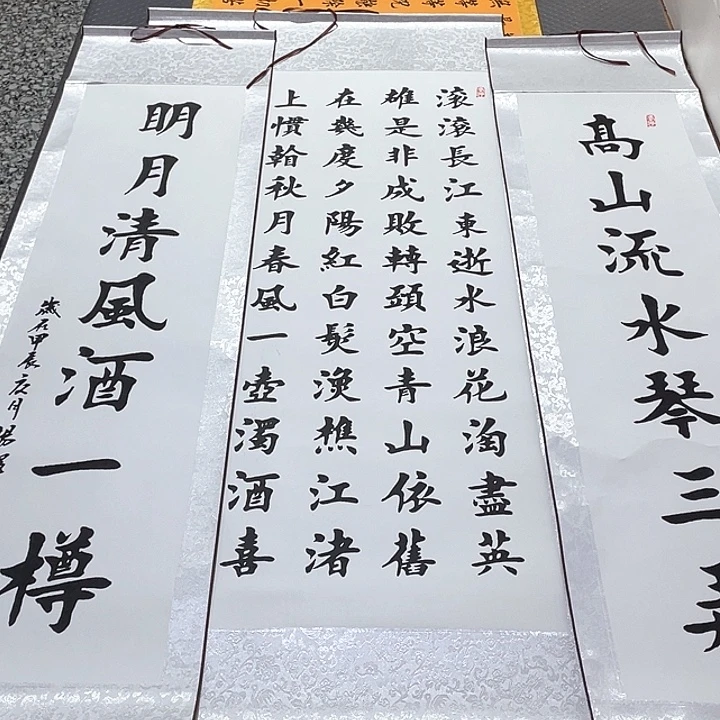 髙山流水琴三弄
滚滚長江東逝水浪花淘盡英
雄是非成敗轉頭空青山依舊
在幾度夕陽紅白髮漁樵江渚
上慣看秋月春風一壺濁酒喜
明月清風酒一樽
歲在甲辰